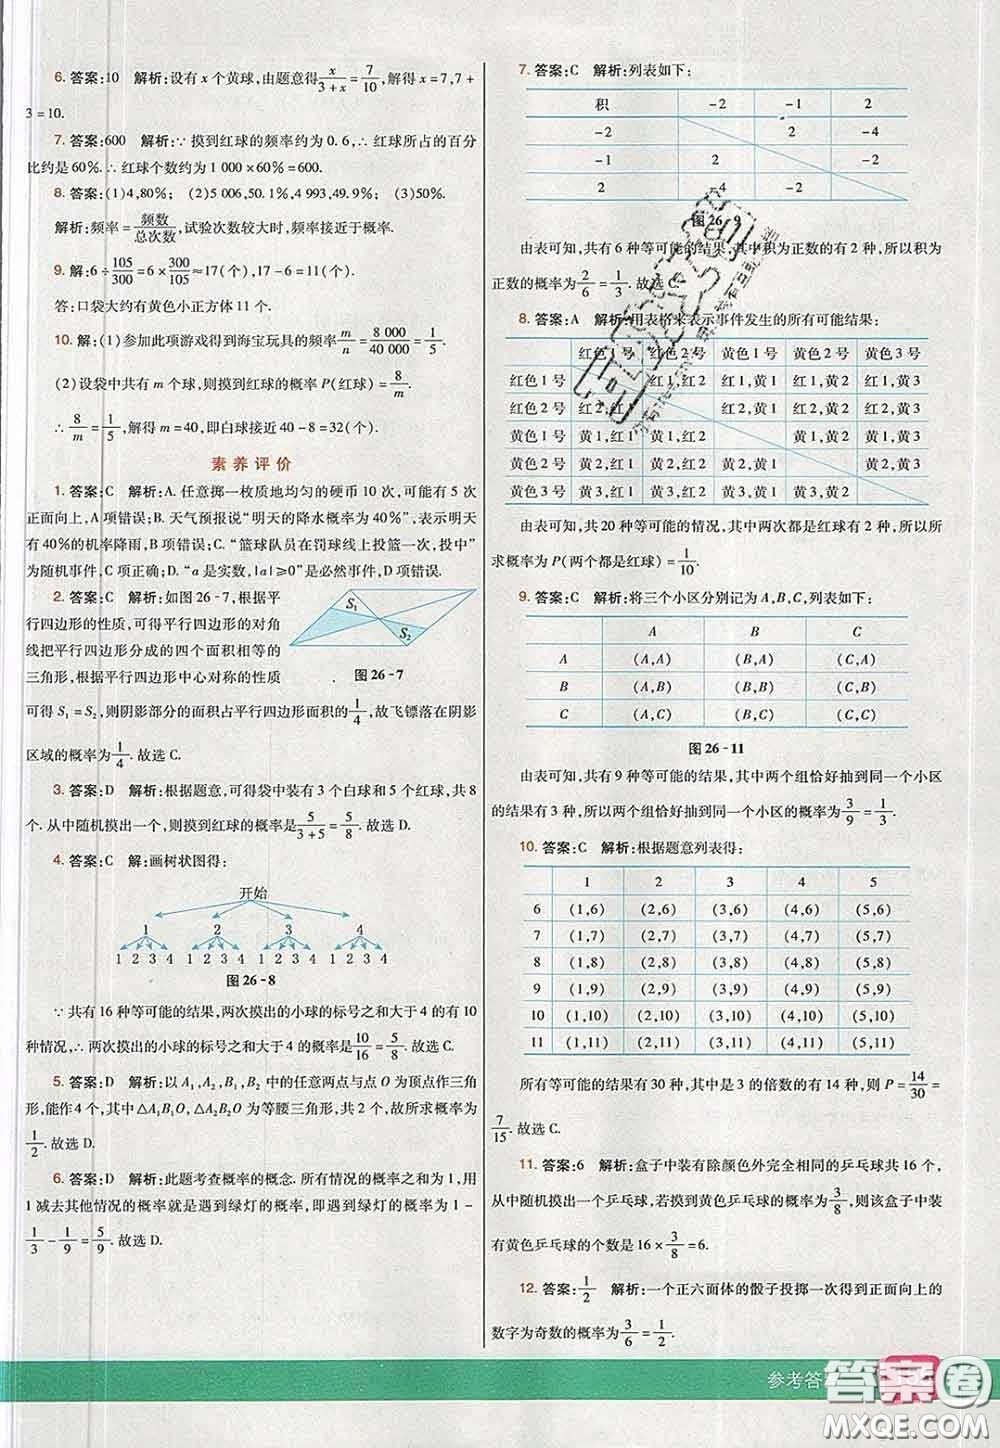 6. 答案:10 解析:设有 x 个黄球,由题意得 x/(3+x) = 7/10,解得 x=7,7+
3=10.
7. 答案:600 解析:∵ 摸到红球的频率约为 0.6,∴ 红球所占的百分
比约是 60%.∴ 红球个数约为 1 000×60%=600.
8. 答案:(1)4,80%; (2)5 006,50.1%,4 993,49.9%; (3)50%.
解析:频率=频数/总次数,试验次数较大时,频率接近于概率.
9. 解:6÷105/300=6×300/105≈17(个),17-6=11(个).
答:口袋大约有黄色小正方体 11 个.
10. 解:(1)参加此项游戏得到海宝玩具的频率 m/n = 8 000/40 000 = 1/5.
(2)设袋中共有 m 个球,则摸到红球的概率 P(红球)=8/m.
∴ 8/m = 1/5,解得 m=40,即白球接近 40-8=32(个).
素养评价
1. 答案:C 解析:A. 任意掷一枚质地均匀的硬币 10 次,可能有 5 次
正面向上,A 项错误;B. 天气预报说“明天的降水概率为 40%”,表示明天
有 40%的机率降雨,B 项错误;C.“篮球队员在罚球线上投篮一次,投中”
为随机事件,C 项正确;D.“a 是实数,|a|≥0”是必然事件,D 项错误.
2. 答案:C 解析:如图 26-7,根据平
行四边形的性质,可得平行四边形的对角
线把平行四边形分成的四个面积相等的
三角形,根据平行四边形中心对称的性质
S1
S2
图 26-7
可得 S1=S2,则阴影部分的面积占平行四边形面积的 1/4,故飞镖落在阴影
区域的概率为 1/4. 故选 C.
3. 答案:D 解析:根据题意,可得袋中装有 3 个白球和 5 个红球,共 8
个. 从中随机摸出一个,则摸到红球的概率是 5/(3+5) = 5/8. 故选 D.
4. 答案:C 解:画树状图得:
开始
1 2 3 4
1 2 3 4 1 2 3 4 1 2 3 4 1 2 3 4
图 26-8
∵ 共有 16 种等可能的结果,两次摸出的小球的标号之和大于 4 的有 10
种情况,∴ 两次摸出的小球的标号之和大于 4 的概率是 10/16 = 5/8. 故选 C.
5. 答案:D 解析:以 A1,A2,B1,B2 中的任意两点与点 O 为顶点作三角
形,能作 4 个,其中 △A1B1O,△A2B2O 为等腰三角形,共 2 个,故所求概率为
1/2. 故选 D.
6. 答案:D 解析:此题考查概率的概念. 所有情况的概率之和为 1,用
1 减去其他情况的概率就是遇到绿灯的概率,即遇到绿灯的概率为 1-
1/3 - 1/9 = 5/9. 故选 D.
7. 答案:C 解析:列表如下:
积 -2 -1 2
-2 2 -4
-1 2 -2
2 -4 -2
图 26-9
由表可知,共有 6 种等可能的结果,其中积为正数的有 2 种,所以积为
正数的概率为 2/6 = 1/3. 故选 C.
8. 答案:A 解析:用表格来表示事件发生的所有可能结果:
红色 1 号 红色 2 号 黄色 1 号 黄色 2 号 黄色 3 号
红色 1 号 红1,红2 红1,黄1 红1,黄2 红1,黄3
红色 2 号 红2,红1 红2,黄1 红2,黄2 红2,黄3
黄色 1 号 黄1,红1 黄1,红2 黄1,黄2 黄1,黄3
黄色 2 号 黄2,红1 黄2,红2 黄2,黄1 黄2,黄3
黄色 3 号 黄3,红1 黄3,红2 黄3,黄1 黄3,黄2
由表可知,共 20 种等可能的情况,其中两次都是红球的有 2 种,所以所
求概率为 P(两个都是红球)=1/10.
9. 答案:C 解析:将三个小区分别记为 A,B,C,列表如下:
A B C
A (A,A) (B,A) (C,A)
B (A,B) (B,B) (C,B)
C (A,C) (B,C) (C,C)
图 26-11
由表可知,共有 9 种等可能的结果,其中两个组恰好抽到同一个小区
的结果有 3 种,所以两个组恰好抽到同一个小区的概率为 3/9 = 1/3.
10. 答案:C 解析:根据题意列表得:
1 2 3 4 5
6 (1,6) (2,6) (3,6) (4,6) (5,6)
7 (1,7) (2,7) (3,7) (4,7) (5,7)
8 (1,8) (2,8) (3,8) (4,8) (5,8)
9 (1,9) (2,9) (3,9) (4,9) (5,9)
10 (1,10) (2,10) (3,10) (4,10) (5,10)
11 (1,11) (2,11) (3,11) (4,11) (5,11)
所有等可能的结果有 30 种,其中是 3 的倍数的有 14 种,则 P = 14/30 =
7/15. 故选 C.
11. 答案:6 解析:盒子中装有除颜色外完全相同的乒乓球共 16 个,
从中随机摸出一个乒乓球,若摸到黄色乒乓球的概率为 3/8,则该盒子中装
有黄色乒乓球的个数是 16×3/8=6.
12. 答案:1/2 解析:一个正六面体的骰子投掷一次得到正面向上的
数字为奇数的概率为 3/6 = 1/2.
参考答
答案圈
MXQE.COM